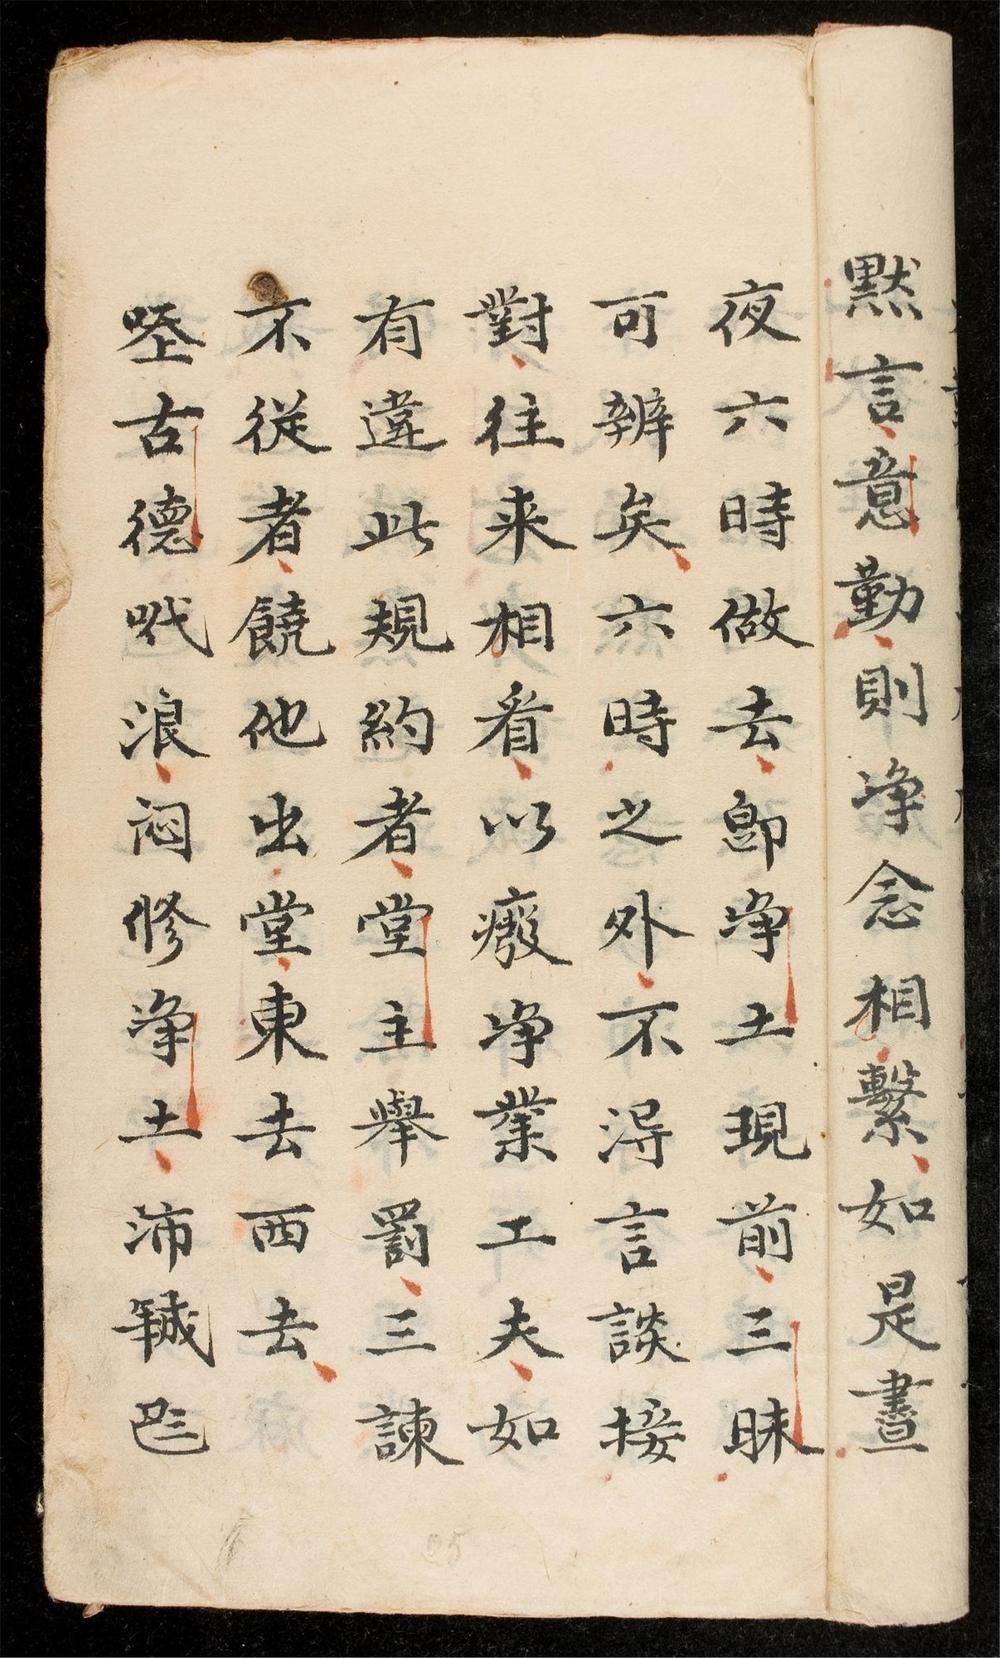 黙言意勤則净念相繫如是晝
夜六時做去卽净土現前三昧
可辨矣六時之外不淂言談接
對往来相看以癈净業工夫如
有違此規約者堂主舉罰三諫
不從者饒他出堂東去西去
古德𠰺浪悶修净土沛𠀧